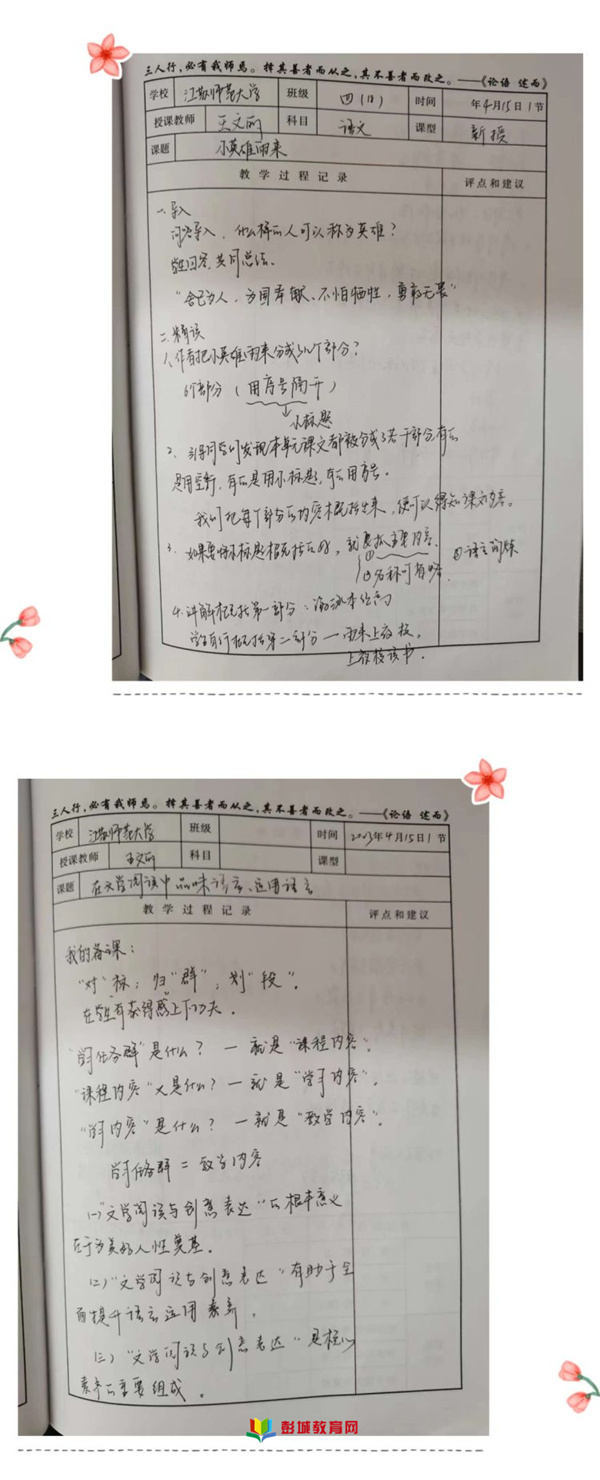 三人行，必有我师焉。择其善者而从之，其不善者而改之。——《论语 述而》
学校 江苏师范大学 班级 四(11) 时间 年4月15日1节
授课教师 王文丽 科目 语文 课型 新授
课题 小英雄雨来
教学过程记录 评点和建议
一、导入
问答导入，什么样的人可以称为英雄？
学生回答，共同总结。
"舍己为人，为国奉献、不怕牺牲，勇敢无畏"
二、精读
1、作者把小英雄雨来分成几个部分？
6个部分（用序号隔开）
小标题
2、引导同学们发现本单元课文都被分成了若干部分有的
是用空行，有的是用小标题，有的用序号。
我们把每个部分的内容概括出来，便可以得知课文内容。
3、如果要将小标题概括的好，就要抓主要内容、
①名称可省略 ②语言简练
4、讲解概括第一部分：游泳本领高
学生自行概括第二部分—雨来上夜校，
上夜校读书．
三人行，必有我师焉。择其善者而从之，其不善者而改之。——《论语 述而》
学校 江苏师范大学 班级 时间 2023年4月15日1节
授课教师 王文丽 科目 课型
课题 在文学阅读中品味语言、运用语言
教学过程记录 评点和建议
我的备课：
"对"标；归"群"；划"段"．
在学生有获得感上下功夫．
"学习任务群"是什么？—就是"课程内容"．
"课程内容"又是什么？—就是"学习内容"．
"学习内容"是什么？—就是"教学内容"．
学习任务群 = 教学内容
(一)"文学阅读与创意表达"的根本意义
在于为美好人性奠基．
(二)"文学阅读与创意表达"有助于全
面提升语言运用素养．
(三)"文学阅读与创意表达"是核心
素养的主要组成．
彭城教育网